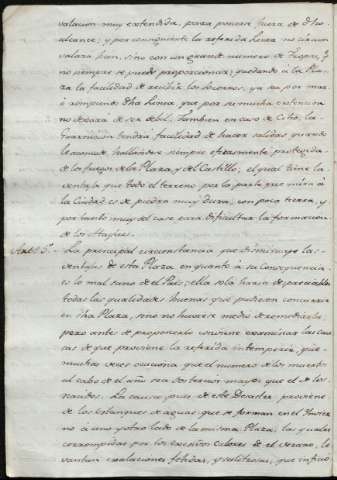 valacion muy extendida, para ponerse fuera de dho
alcance; y por consiguiente la referida Linea no circum
valara bien, sino con un grande numero de Tropas, y
no siempre se puede proporcionar; quedando à la Pla-
za la facilidad de recibir los socorros, ya sea por mar
ò rompiendo dha Linea, que por su mucha extension
no dexarà de ser debil. Tambien en caso de Sitio, la
Guarnicion tendra facilidad de hacer salidas quando
le acomode, hallandose siempre eficazmente protegida
de los fuegos de la Plaza, y del Castillo; el qual tiene la
ventaja que todo el terreno por la parte que mira à
la Ciudad es de piedra muy dura, con poca tierra, y
por tanto muy del caso para dificultar la formacion
de los Ataques.
Art.º 5.º La principal circunstancia que disminuye las
ventajas de esta Plaza en quanto à su consequencia
es lo mal sano de el Pais; ella sola haria despreciables
todas las qualidades buenas que pudiesen concurrir
en dha Plaza, sino no huviese medio de remediarla;
pero antes de proponerlo conviene examinar las cau
sas de que proviene la referida intemperie, que
muchas veces ocasiona que el numero de los muertos
al cabo de el año sea dos tercios mayor que el de los
nacidos. La causa pues de este Desastre, proviene
de los estanques de aguas que se forman en el Invier
no à uno y otro lado de la misma Plaza, las quales
corrompidas por los excesivos calores de el verano, le
vantan exalaciones fetidas, y salitrosas, que inficio